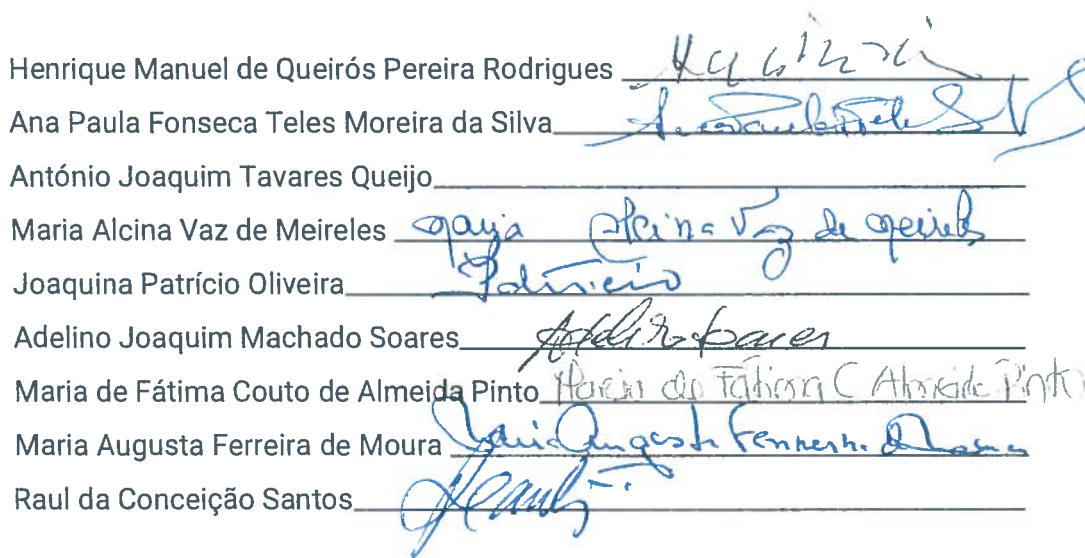 Henrique Manuel de Queirós Pereira Rodrigues
Ana Paula Fonseca Teles Moreira da Silva
António Joaquim Tavares Queijo
Maria Alcina Vaz de Meireles Maria Alcina Vaz de Meireles
Joaquina Patrício Oliveira Patrício
Adelino Joaquim Machado Soares
Maria de Fátima Couto de Almeida Pinto Maria de Fátima C Almeida Pinto
Maria Augusta Ferreira de Moura Maria Augusta Ferreira de Moura
Raul da Conceição Santos Raul